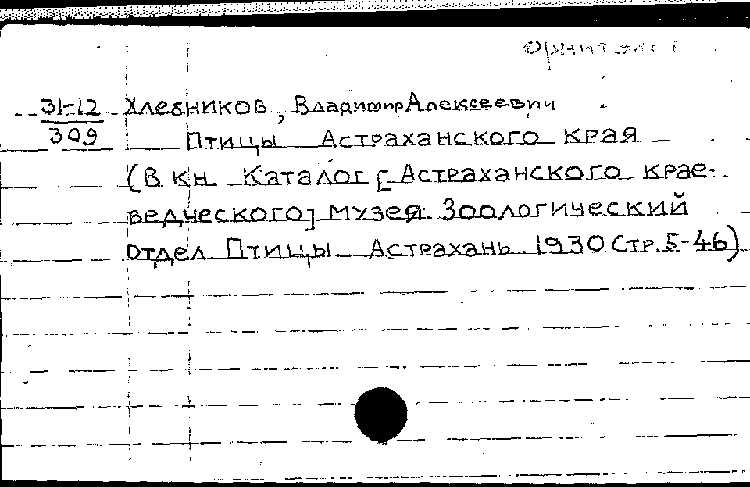 31-12 Хлебников, Владимир Алексеевич
309 Птицы Астраханского края
(В кн Каталог [Астраханского крае-
ведческого] музея. Зоологический
отдел Птицы Астрахань 1930 Стр. 5-46)